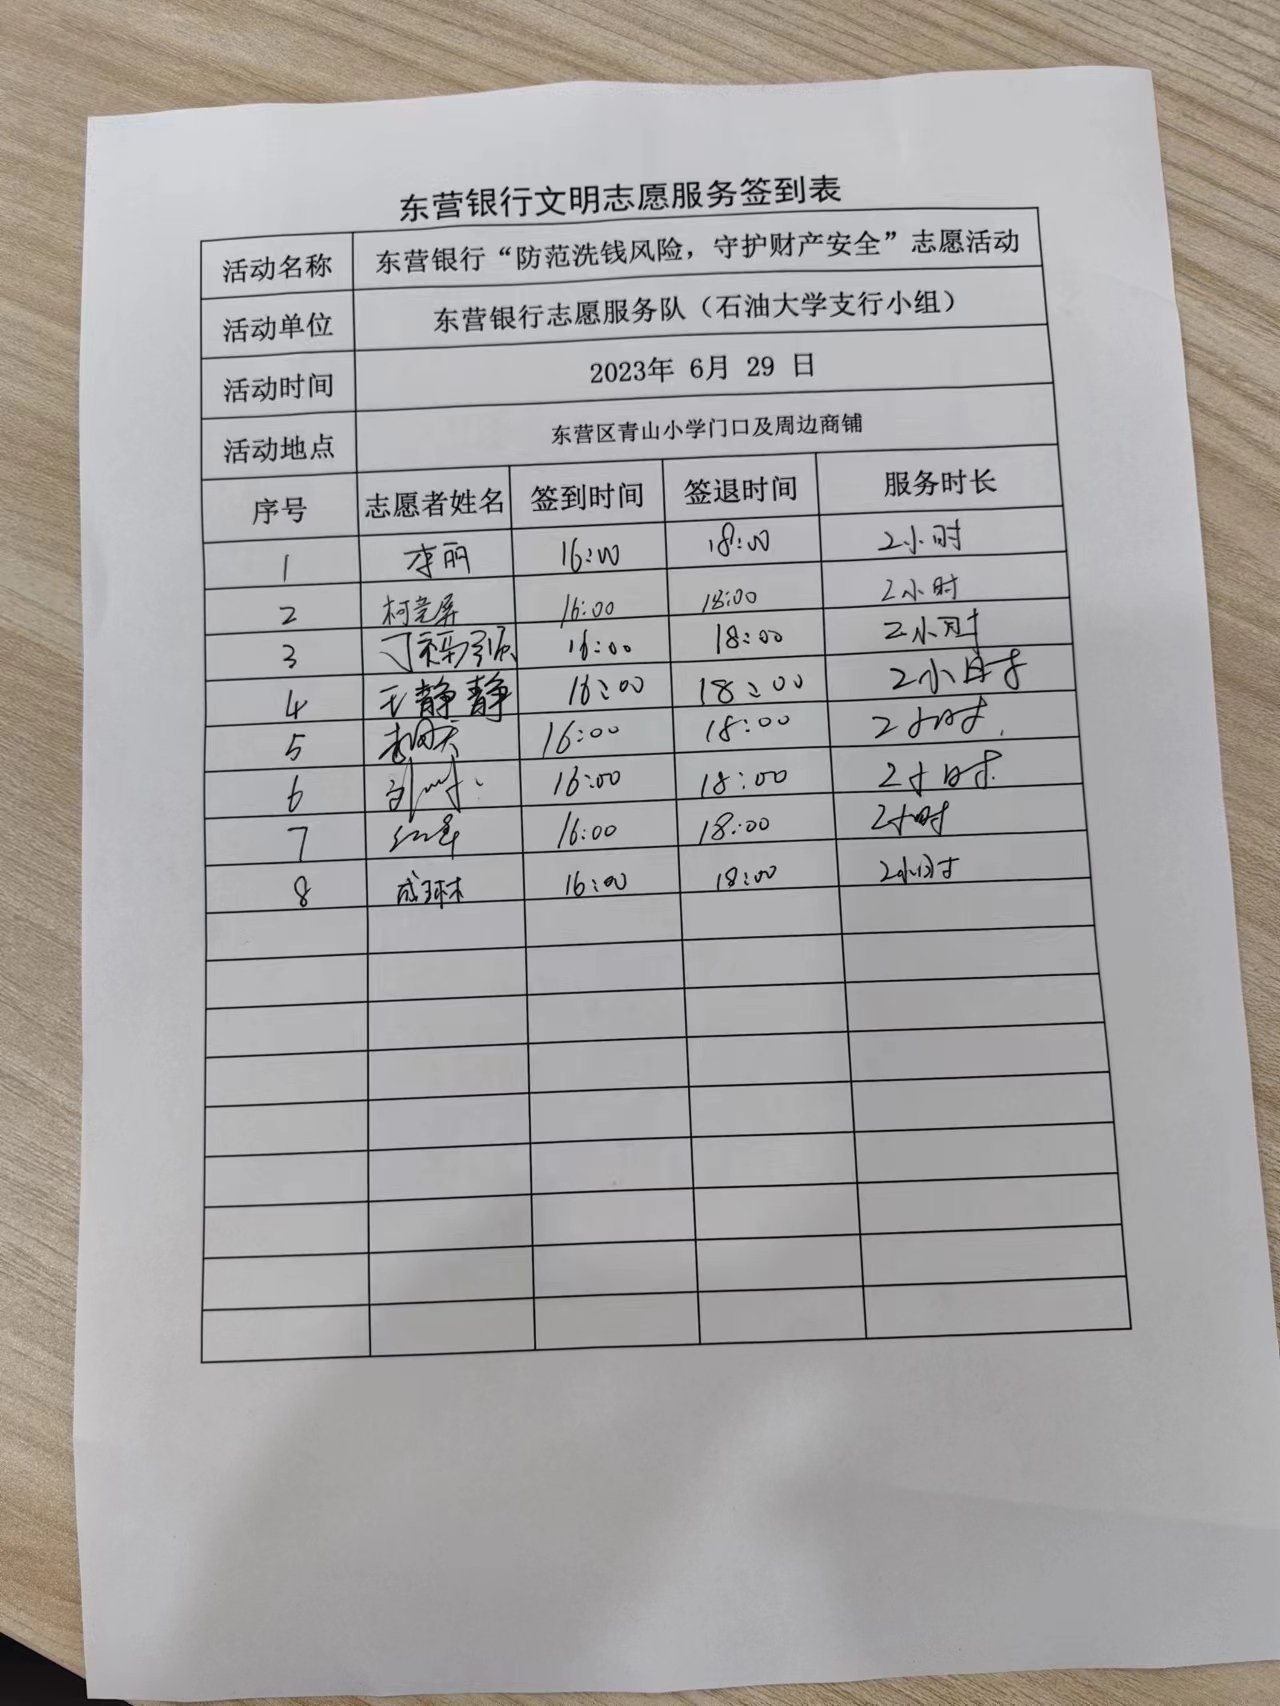 东营银行文明志愿服务签到表
活动名称 东营银行“防范洗钱风险，守护财产安全”志愿活动
活动单位 东营银行志愿服务队（石油大学支行小组）
活动时间 2023年 6月 29 日
活动地点 东营区青山小学门口及周边商铺
序号 志愿者姓名 签到时间 签退时间 服务时长
1 李丽 16:00 18:00 2小时
2 16:00 18:00 2小时
3 16:00 18:00 2小时
4 王静静 16:00 18:00 2小时
5 16:00 18:00 2小时
6 16:00 18:00 2小时
7 16:00 18:00 2小时
8 成琳 16:00 18:00 2小时